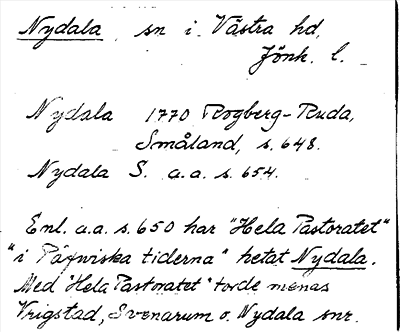 Nydala, sn i Västra hd,
Jönk. l.
Nydala 1770 Rogberg-Ruda,
Småland, s. 648.
Nydala S. a.a. s. 654.
Enl. a.a. s. 650 har "Hela Pastoratet"
"i Påfwiska tiderna" hetat Nydala.
Med "Hela Pastoratet" torde menas
Vrigstad, Svenarum o. Nydala snr.